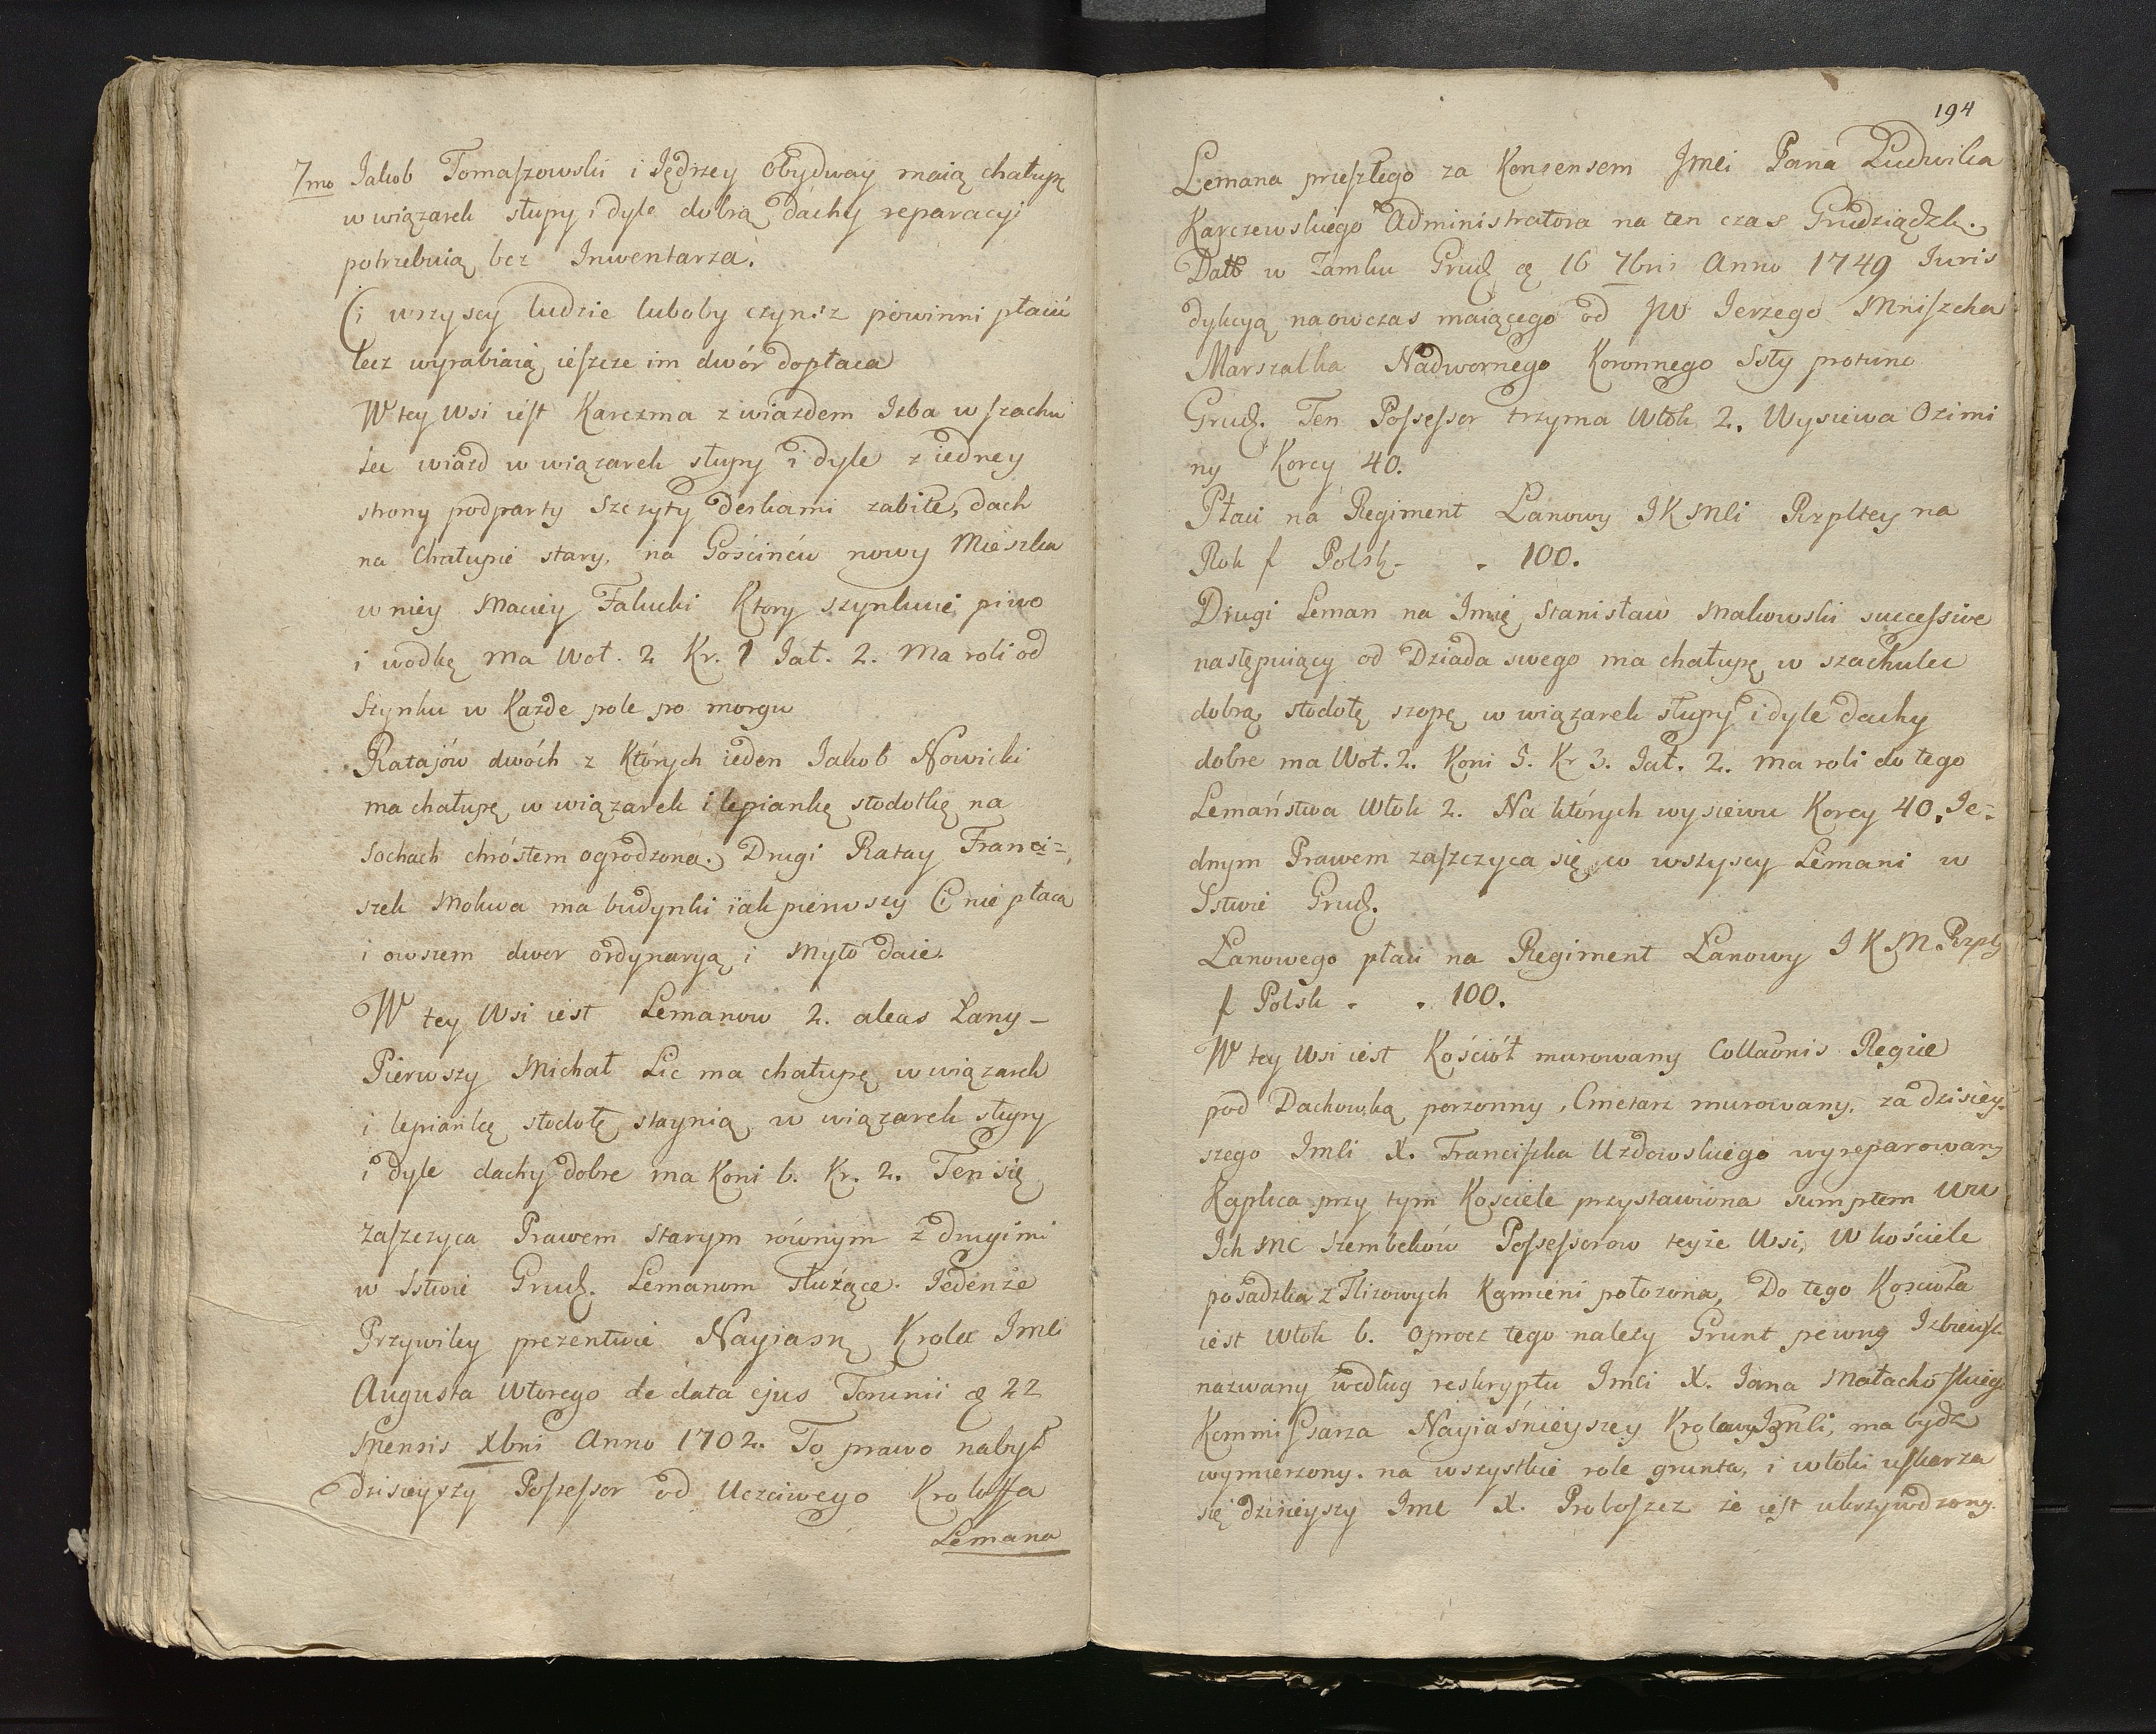 7mo Jakob Tomaszowski i Jędrzey obydway maią chałupę
w wiązarek słupy i dyle dobrą dachy reparacyi
potrzebuią bez Inwentarza.
Ci wszyscy ludzie luboby czynsz powinni płacić
lecz wyrabiaią ieszcze im dwór dopłaca
W tey Wsi iest Karczma z wiazdem Izba w szachu
lec wiazd w wiązarek słupy i dyle z iedney
strony podparty Szczyty deskami zabite, dach
na Chałupie stary, na Gościńcu nowy Mieszka
w niey Maciey Falucki Ktory szynkuie piwo
i wodkę ma Woł. 2 Kr. 1 Jał. 2. Ma roli od
Szynku w Każde pole po morgu
Ratajów dwóch z Których ieden Jakob Nowicki
ma chałupę w wiązarek i lepiankę stodołkę na
Sochach chróstem ogrodzoną. Drugi Ratay Franci=
szek Mokwa ma budynki iak pierwszy Ci nie płacą
i owszem dwor ordynaryą i Myto daie.
W tey Wsi iest Lemanow 2. alias Łany –
Pierwszy Michał Lic ma chałupę w wiązarek
i lepiankę stodołę staynią w wiązarek słupy
i dyle dachy dobre ma Koni 6. Kr. 2. Ten się
zaszczyca Prawem Starym równym z drugimi
w Sstwie Grud. Lemanom służące. Jedenże
Przywiley prezentuie Nayiasn Krola Jmci
Augusta Wtorego de data ejus Torunii 22
Mensis Xbris Anno 1702. To prawo nabył
dzisieyszy Possessor od Uczciwego Kroloffa
Lemana
194
Lemana przeszłego za Konsensem Jmci Pana Ludwika
Karczewskiego Administratora na ten czas Grudziądzk.
Datt w Zamku Grud 16 7bris Anno 1749 Juris
dykcyą naowczas maiącego od JW Jerzego Mniszcha
Marszałka Nadwornego Koronnego Ssty protunc
Grud. Ten Possessor trzyma Włok 2. Wysiewa Ozimi
ny Korcy 40.
Płaci na Regiment Łanowy JKJMCi Rzpltey na
Rok f Polsk - . 100.
Drugi Leman na Jmię Stanisław Makowski successive
następuiący od Dziada swego ma chałupę w szachulec
dobrą stodołę szopę w wiązarek słupy i dyle dachy
dobre ma Woł. 2. Koni 5. Kr 3. Jał. 2. ma roli do tego
Lemaństwa Włok 2. Na których wysiewu Korcy 40. Je=
dnym Prawem zaszczyca się co wszyscy Lemani w
Sstwie Grud.
Łanowego płaci na Regiment Łanowy JKJM. Rzplt
f Polsk . . 100.
W tey Wsi iest Kościół murowany Collaonis Regiæ
pod Dachowką porządny, Cmetarz murowany, za dzisiey
szego Jmci X. Franciszka Uzdowskiego wyreparowany
Kaplica przy tym Kościele przystawiona Sumptem WW
Ich Mc Szembeków Possessorow teyże Wsi, W kościele
posadzka z Flizowych Kamieni położona, Do tego Kościoła
iest Włok 6. oprocz tego należy Grunt pewny Izbieńsk
nazwany według reskryptu Jmci X. Jana Małachoskiego
Kommissarza Nayiaśnieyszey Krolowy Jmci, ma bydz
wymierzony. na wszystkie role grunta, i włoki uskarza
się dzisieyszy Jmc X. Proboszcz że iest ukrzywdzony.